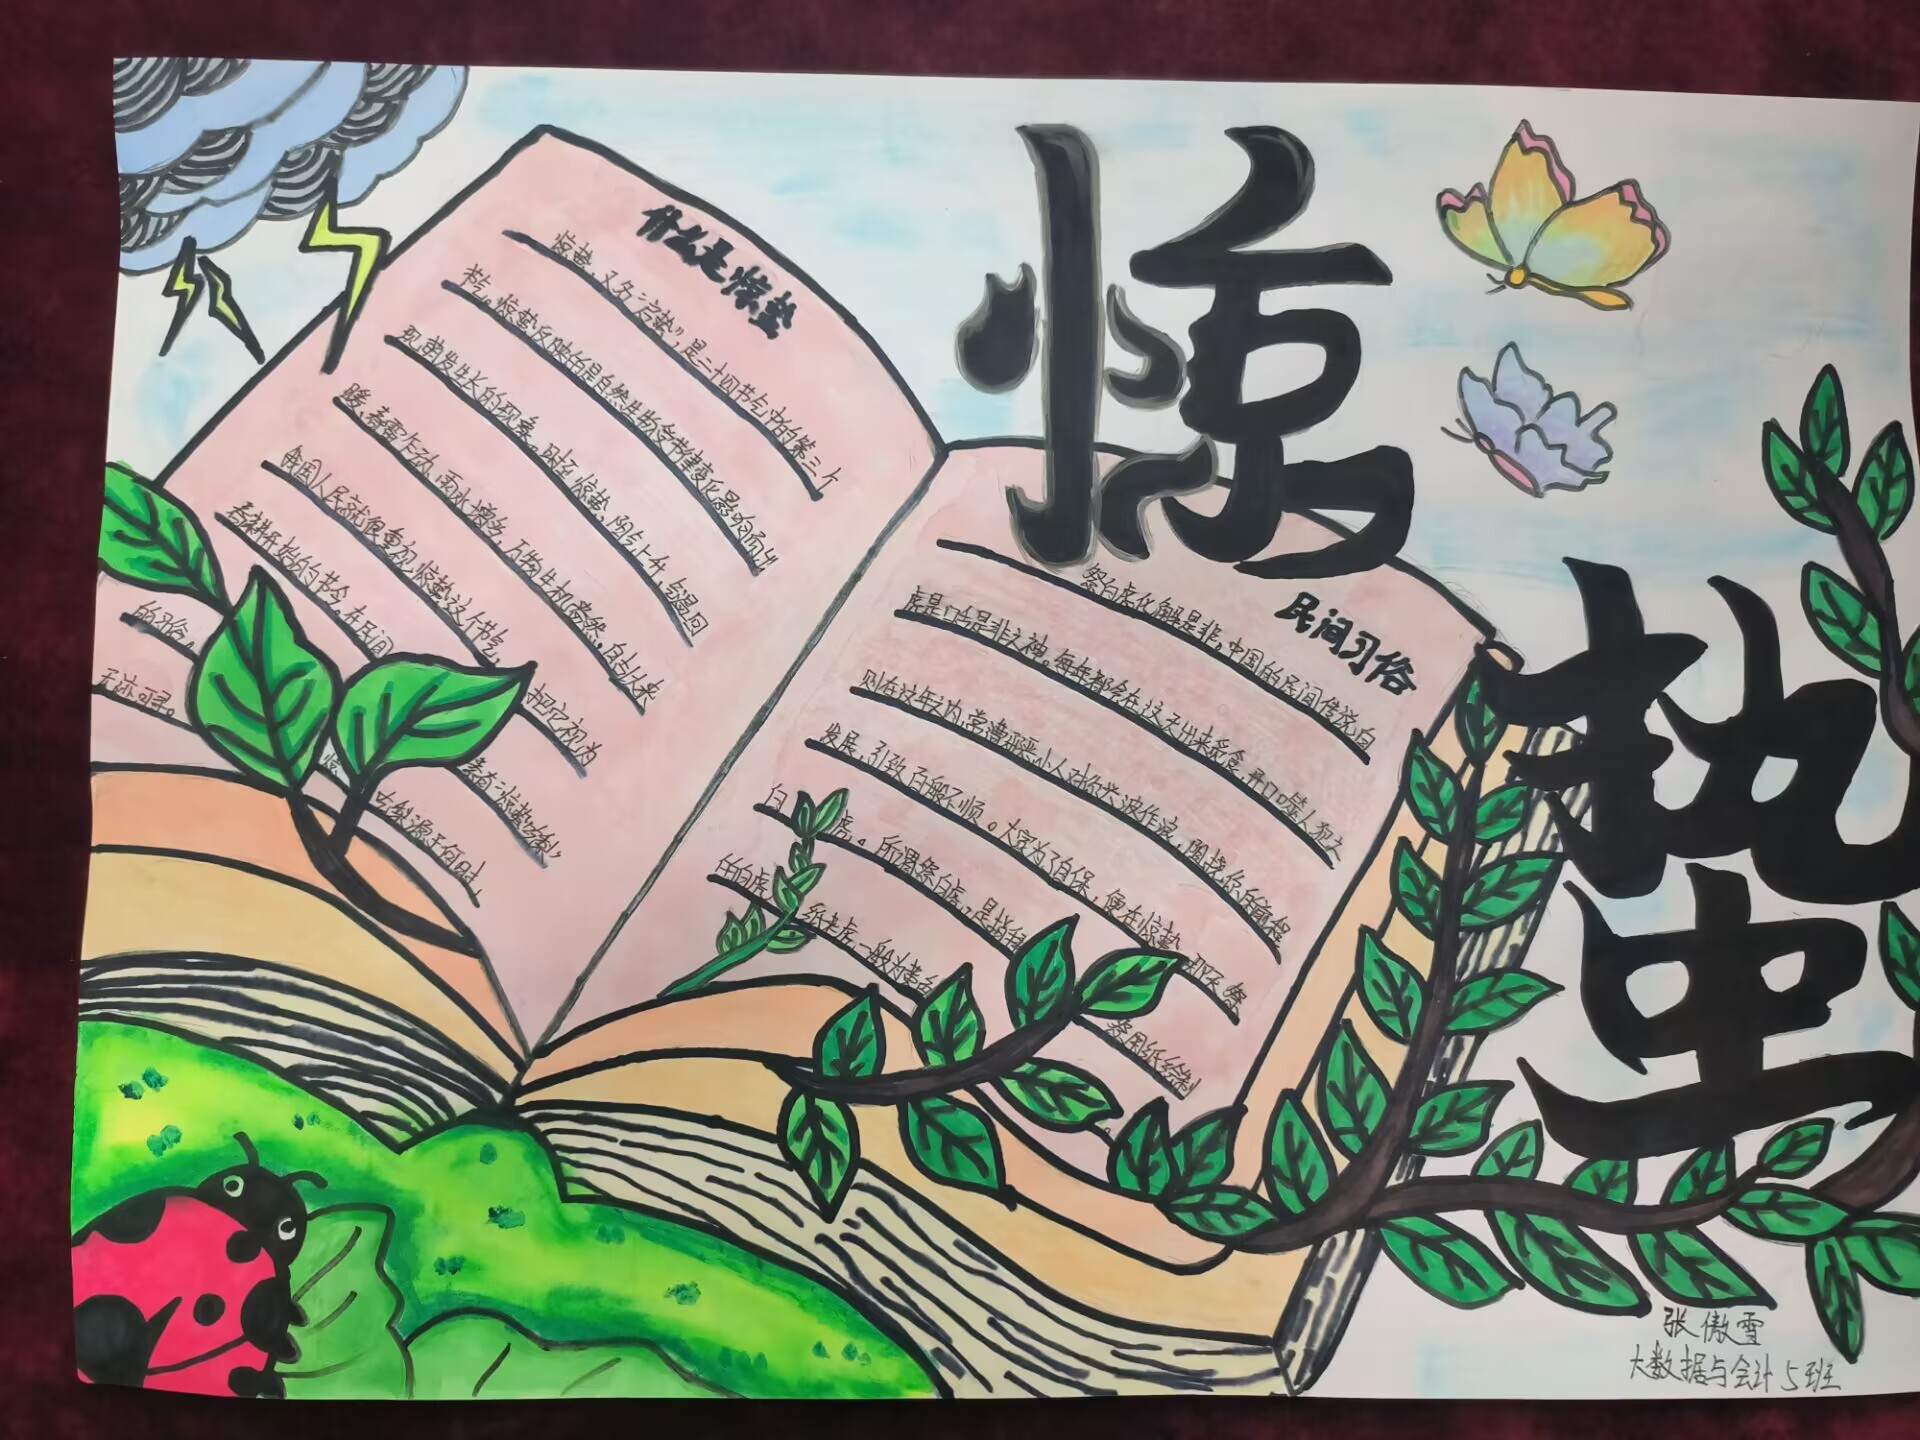 惊
蛰
什么是惊蛰
惊蛰，又名"启蛰"，是二十四节气中的第三个
节气，惊蛰反映的是自然生物受节律变化影响而出
现萌发生长的现象。时至惊蛰，阳气上升，气温回
暖，春雷乍动，雨水增多，万物生机盎然，自古以来
我国人民就很重视惊蛰这个节气，把它视为
春耕开始的节令。在民间 素有"惊蛰
的习俗，惊 吃梨源于何时，
无迹可寻。
民间习俗
祭白虎化解是非，中国的民间传说白
虎是口舌是非之神，每年都会在这天出来觅食，开口噬人，犯之
则在这年之内，常遭邪恶小人对你兴波作浪，阻挠你的前程
发展，引致百般不顺。大家为了自保，便在惊蛰那天祭
白虎。所谓祭白虎，是指 祭用纸绘制
的白虎 纸老虎，一般为黄色
张傲雪
大数据与会计5班